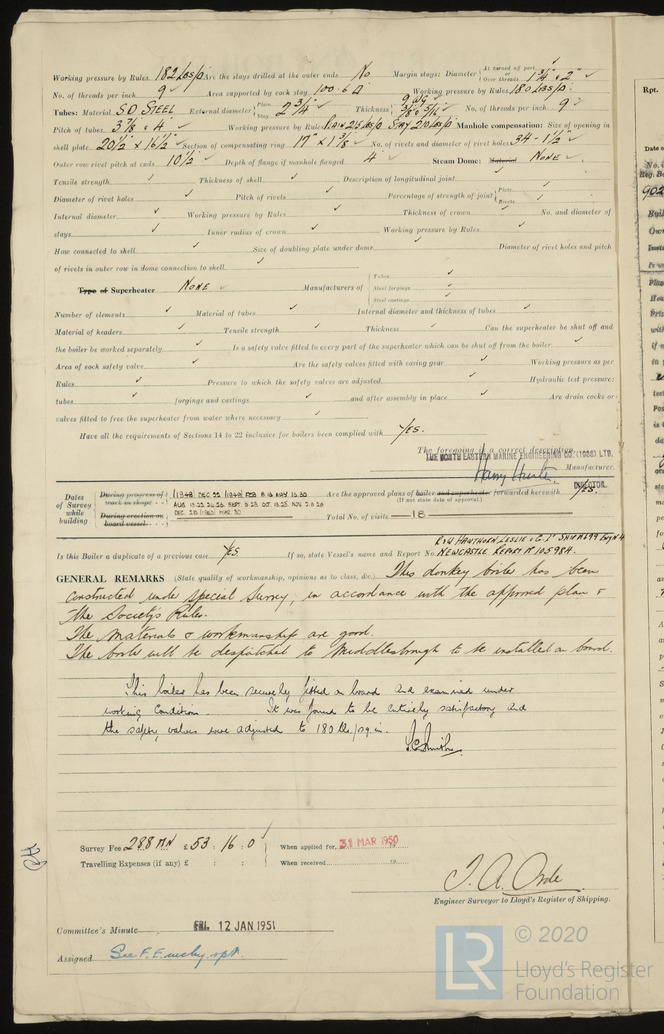 Working pressure by Rules 182 Lbs/□" Are the stays drilled at the outer ends No Margin stays: Diameter { At turned off part, or Over threads 1 3/4" & 2"
No. of threads per inch 9 Area supported by each stay Working pressure by Rules 180 Lbs/□"
Tubes: Material S.D STEEL External diameter { Plain Stay 2 3/4" Thickness { 9 WG No. of threads per inch 9
Pitch of tubes 3 7/8 × 4" Working pressure by Rules Manhole compensation: Size of opening in
shell plate 20 1/2" × 16 1/2" Section of compensating ring 17" × 1 3/8" No. of rivets and diameter of rivet holes 34 - 1 1/2"
Outer row rivet pitch at ends 10 1/2" Depth of flange if manhole flanged 4" Steam Dome: Material NONE
Tensile strength Thickness of shell Description of longitudinal joint
Diameter of rivet holes Pitch of rivets Percentage of strength of joint { Plate Rivets
Internal diameter Working pressure by Rules Thickness of crown No. and diameter of
stays Inner radius of crown Working pressure by Rules
How connected to shell Size of doubling plate under dome Diameter of rivet holes and pitch
of rivets in outer row in dome connection to shell
Type of Superheater NONE Manufacturers of { Tubes Steel forgings Steel castings
Number of elements Material of tubes Internal diameter and thickness of tubes
Material of headers Tensile strength Thickness Can the superheater be shut off and
the boiler be worked separately Is a safety valve fitted to every part of the superheater which can be shut off from the boiler
Area of each safety valve Are the safety valves fitted with easing gear Working pressure as per
Rules Pressure to which the safety valves are adjusted Hydraulic test pressure:
tubes forgings and castings and after assembly in place Are drain cocks or
valves fitted to free the superheater from water where necessary
Have all the requirements of Sections 14 to 22 inclusive for boilers been complied with YES.
The foregoing is a correct description,
THE NORTH EASTERN MARINE ENGINEERING CO. (1938) LTD.
Harry Hunter Manufacturer.
DIRECTOR.
Dates of Survey while building { During progress of work in shops - - During erection on board vessel - - -
Are the approved plans of boiler and superheater forwarded herewith YES.
(If not state date of approval.)
Total No. of visits 18
R & W HAWTHORN, LESLIE & Co. Lᵈ
Is this Boiler a duplicate of a previous case YES If so, state Vessel's name and Report No. NEWCASTLE REPORT Nº 105984.
GENERAL REMARKS (State quality of workmanship, opinions as to class, &c.) This donkey boiler has been
constructed under special survey, in accordance with the approved plan &
the Society's Rules.
The materials & workmanship are good.
The boiler will be despatched to Middlesbrough to be installed on board.
This boiler has been securely fitted on board and examined under
working conditions. It was found to be entirely satisfactory and
the safety valves were adjusted to 180 lbs/sq in.
Survey Fee 288 MN £ 53 : 16 : 0 When applied for, 31 MAR 1950 19
Travelling Expenses (if any) £ : : When received 19
T. A. Orde
Engineer Surveyor to Lloyd's Register of Shipping.
Committee's Minute FRI. 12 JAN 1951
Assigned See F.E. mchy. rpt.
Rpt.
Date of
No.
Reg. Bo
902
Built
Own
LR
© 2020
Lloyd's Register
Foundation